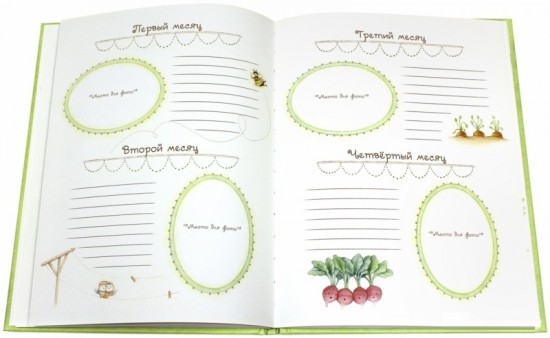 Первый месяц
*Место для фото*
Второй месяц
*Место для фото*
Третий месяц
*Место для фото*
Четвёртый месяц
*Место для фото*